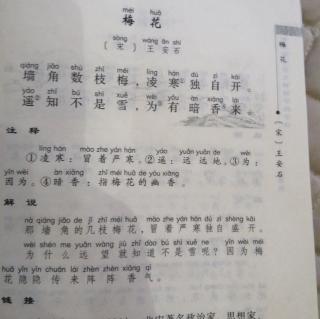 méi huā
梅花
sòng wáng ān shí
〔宋〕王安石
qiáng jiǎo shù zhī méi líng hán dú zì kāi
墙角数枝梅，凌寒①独自开。
yáo zhī bú shì xuě wèi yǒu àn xiāng lái
遥②知不是雪，为③有暗香④来。
注释
líng hán mào zhe yán hán yáo yuǎn yuǎn de wèi
①凌寒：冒着严寒。②遥：远远地。③为：
yīn wèi àn xiāng zhǐ méi huā de yōu xiāng
因为。④暗香：指梅花的幽香。
解说
nà qiáng jiǎo de jǐ zhī méi huā mào zhe yán hán dú zì shèng kāi
那墙角的几枝梅花，冒着严寒独自盛开。
wèi shén me yuǎn wàng jiù zhī dào bú shì xuě ne yīn wèi méi
为什么远望就知道不是雪呢？因为梅
huā yǐn yǐn chuán lái zhèn zhèn xiāng qì
花隐隐传来阵阵香气。
链接
著名政治家、思想家、
梅花
〔宋〕王安石